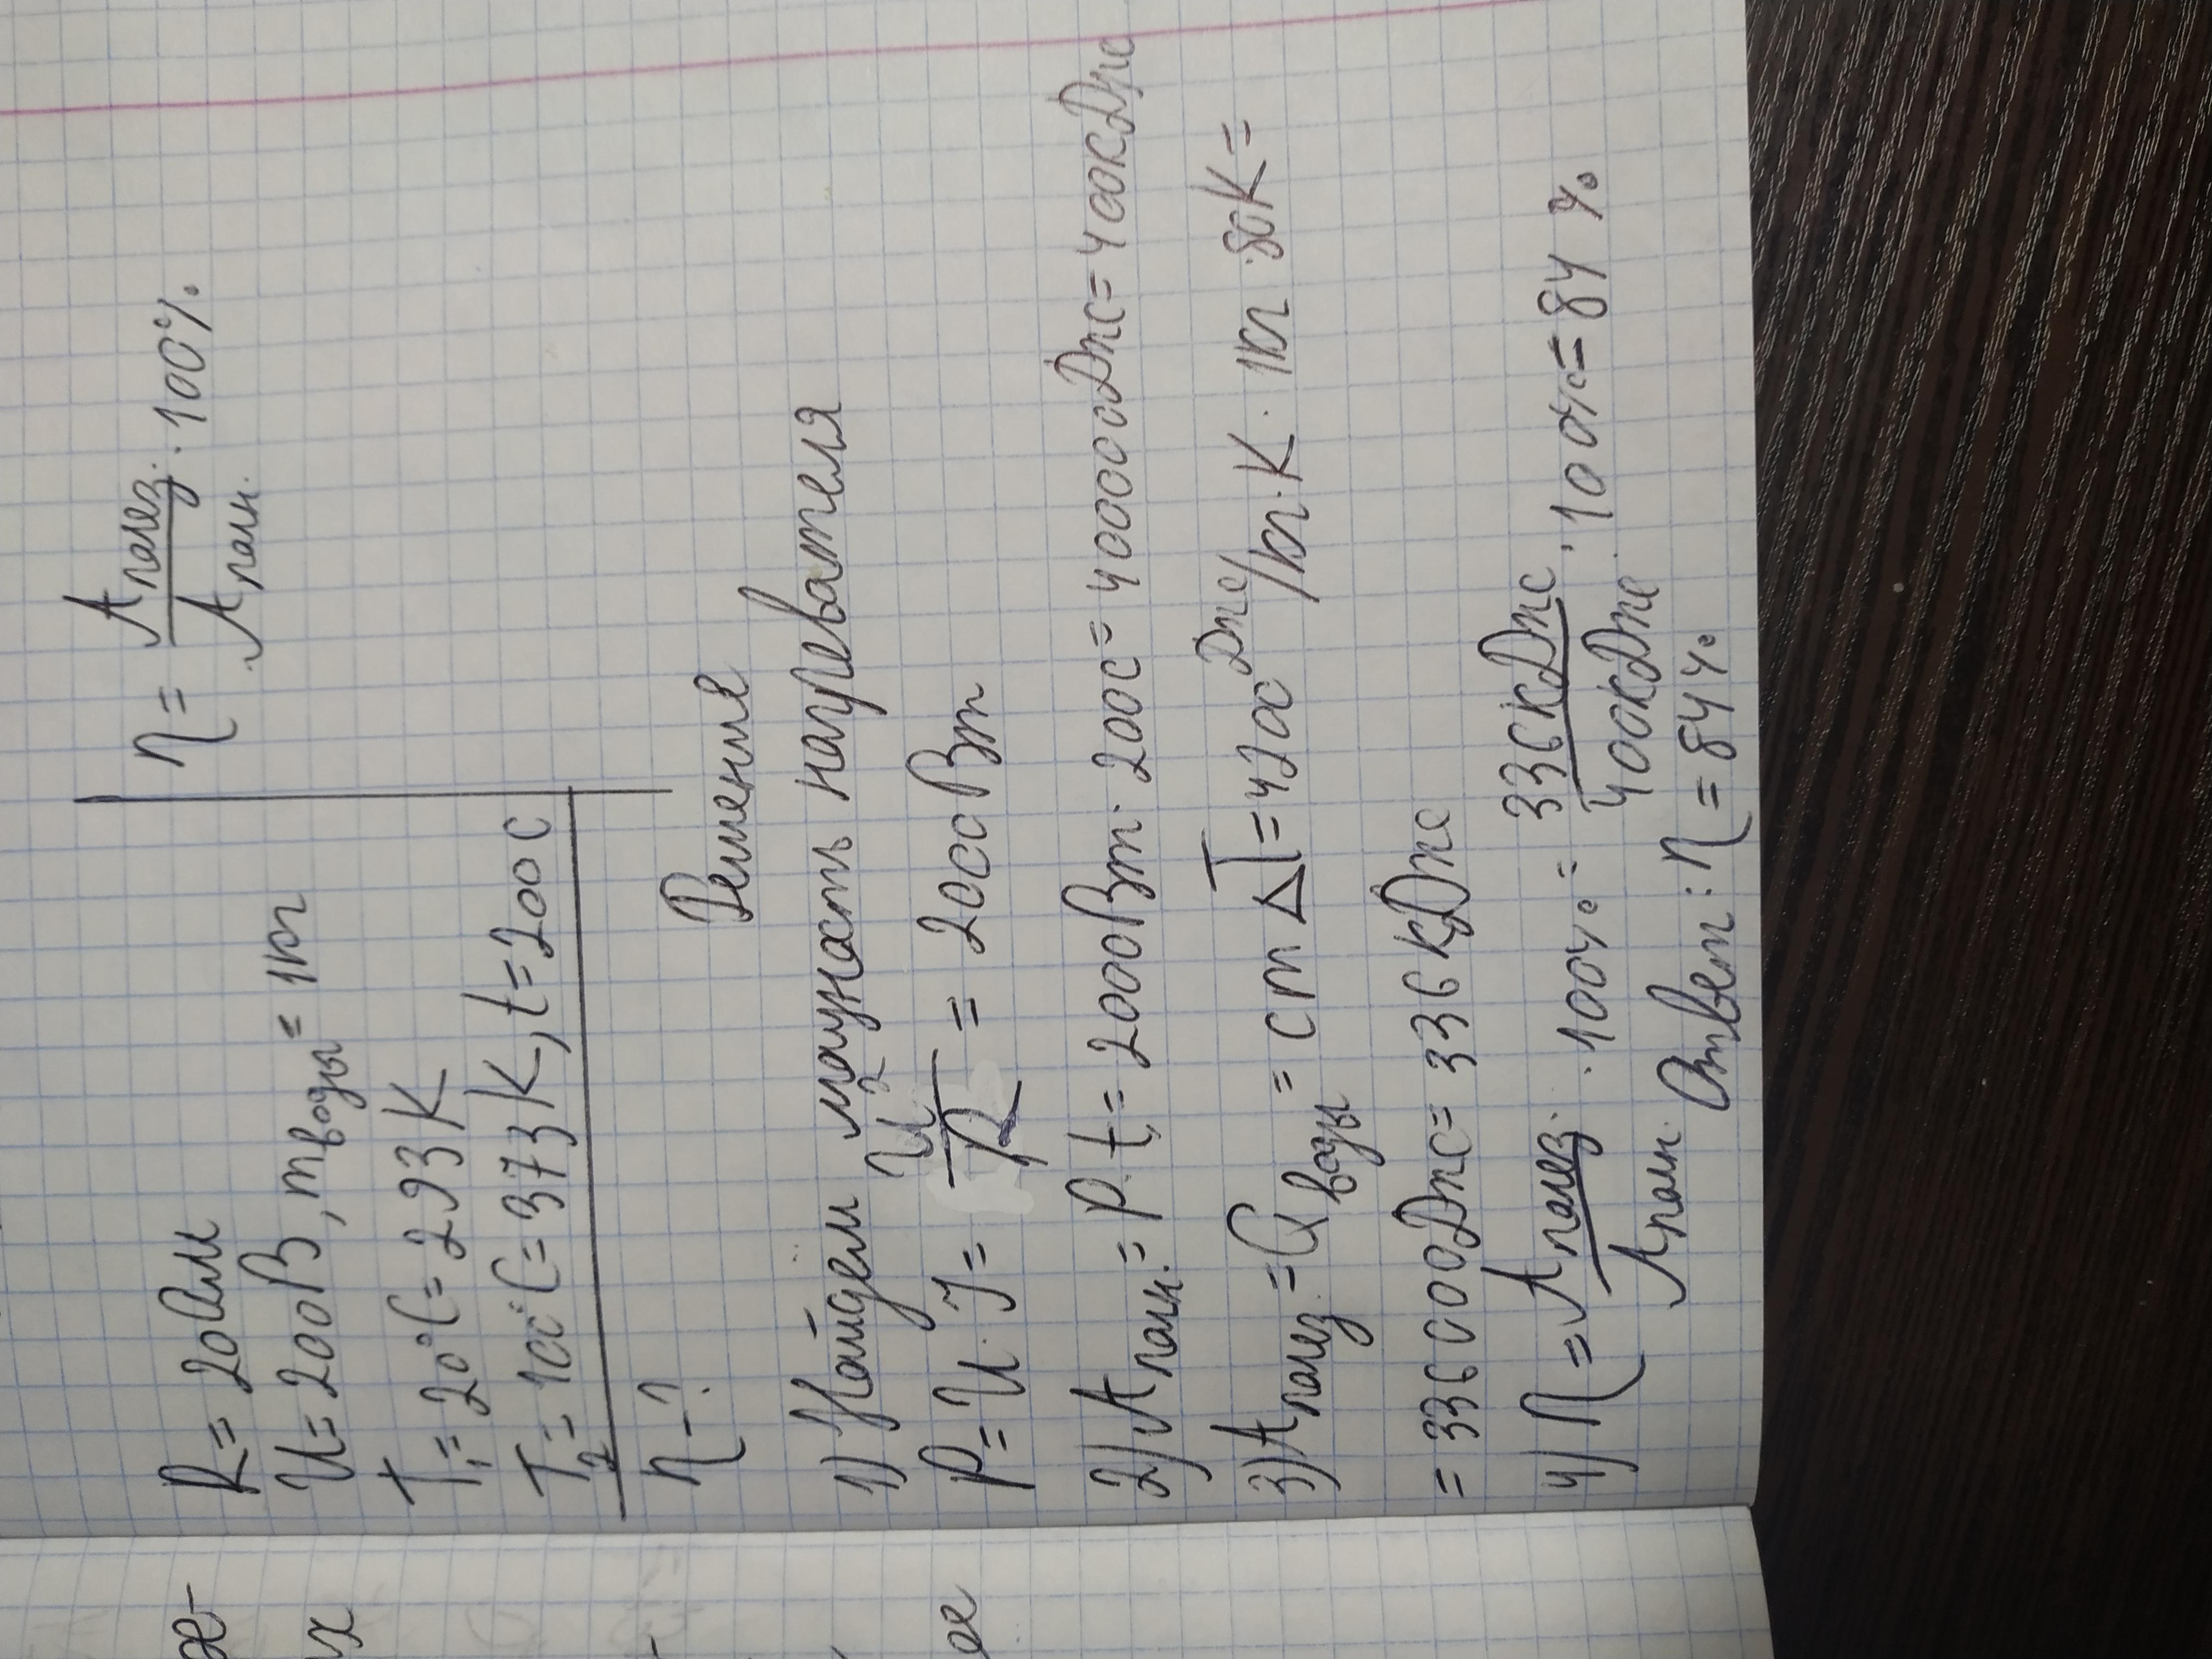 ж-
их
ое
R = 20 Ом
U = 200 В, m воды = 1 кг
T₁ = 20°C = 293 K
T₂ = 100°C = 373 K, t = 200 с
η - ?
η = Aполез. / Aполн. · 100%
Решение
1) Найдем мощность нагревателя
P = U · J = U² / R = 2000 Вт
2) Aполн. = P · t = 2000 Вт · 200 с = 400000 Дж = 400 кДж
3) Aполез. = Q воды = cm ΔT = 4200 Дж/кг·К · 1 кг · 80К =
= 336000 Дж = 336 кДж
4) η = Aполез. / Aполн. · 100% = 336 кДж / 400 кДж · 100% = 84 %
Ответ: η = 84%